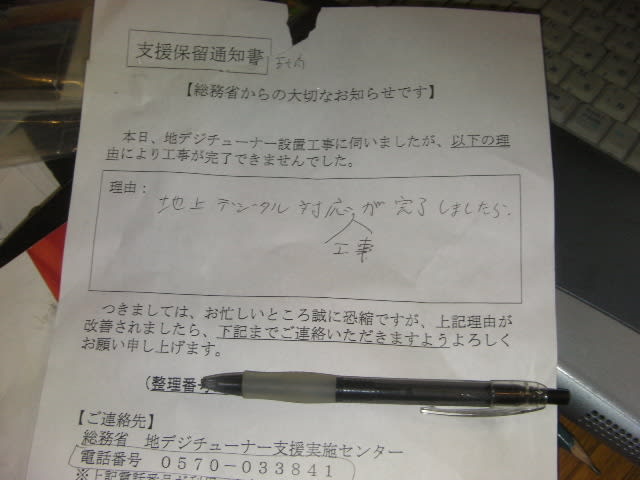 支援保留通知書
【総務省からの大切なお知らせです】
本日、地デジチューナー設置工事に伺いましたが、以下の理
由により工事が完了できませんでした。
理由：
地上デジタル対応が完了しましたら.
工事
つきましては、お忙しいところ誠に恐縮ですが、上記理由が
改善されましたら、下記までご連絡いただきますようよろしく
お願い申し上げます。
(整理番号
【ご連絡先】
総務省　地デジチューナー支援実施センター
電話番号　０５７０－０３３８４１